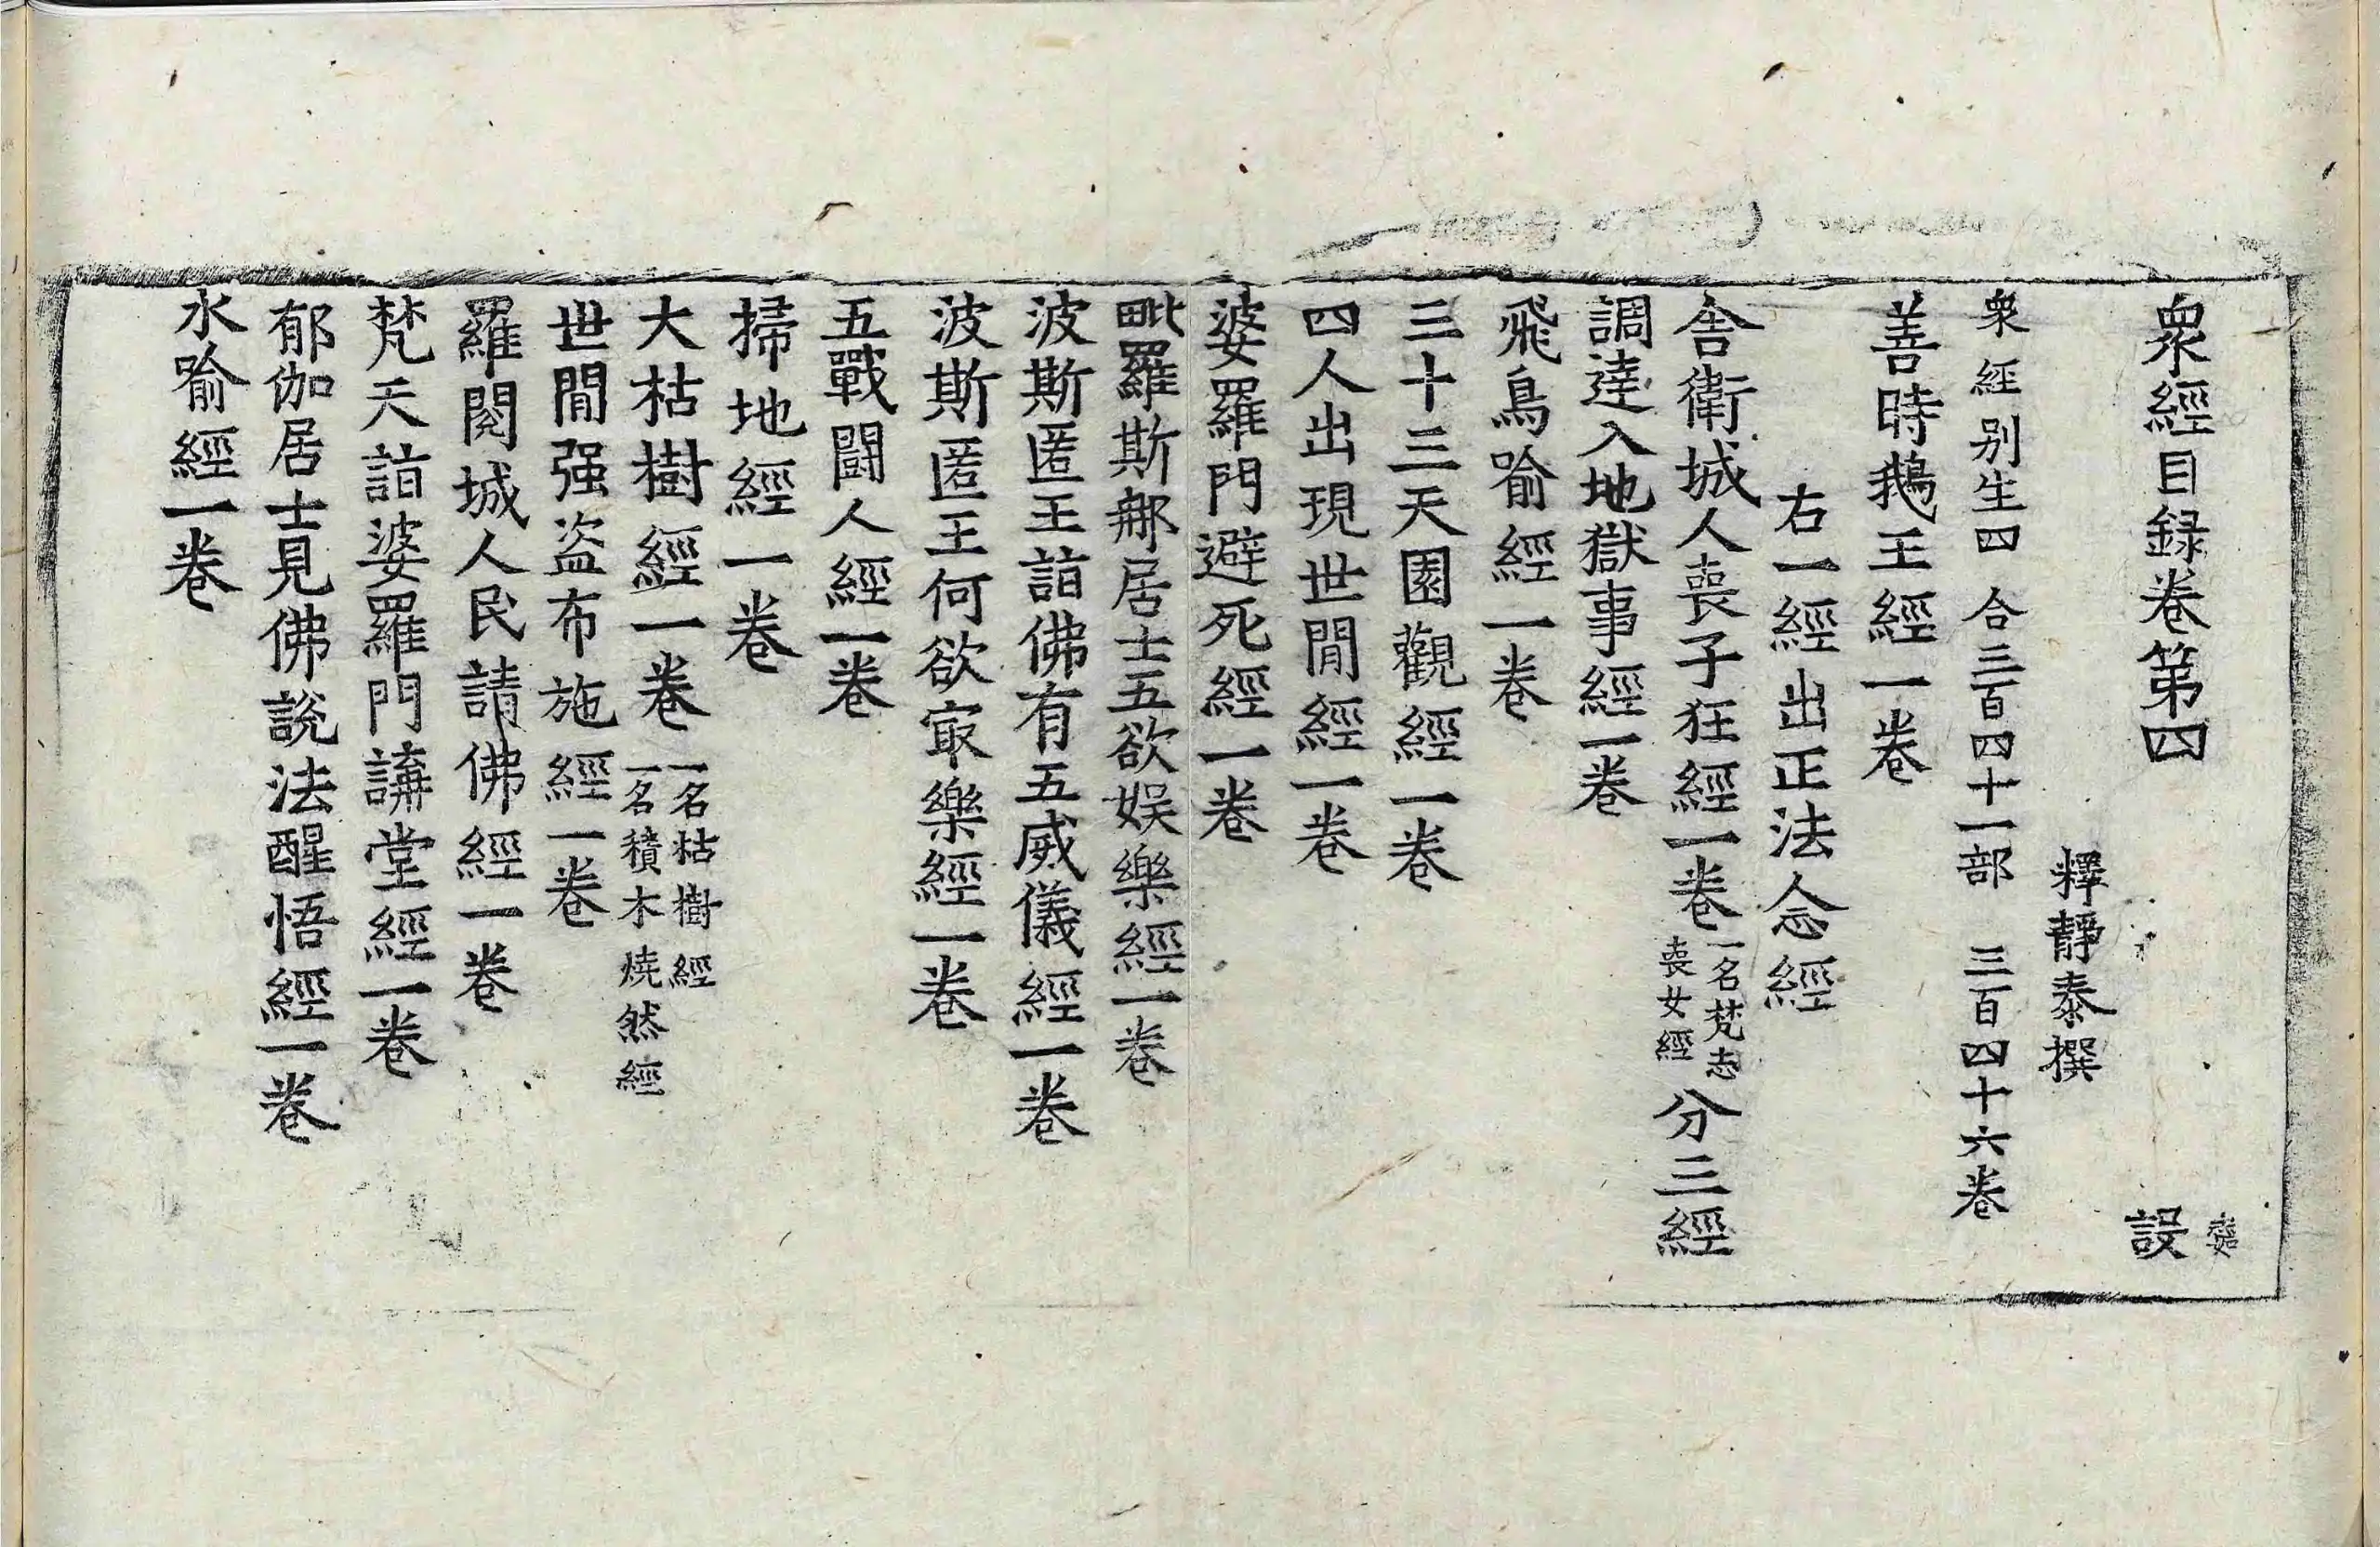 衆經目録卷第四 設
釋靜泰撰
衆經别生四 合三百四十一部 三百四十六卷
善時鵝王經一卷
右一經出正法念經
舎衛城人喪子狂經一卷 一名梵志喪女經 分三經
調達入地獄事經一卷
飛鳥喻經一卷
三十三天園觀經一卷
四人出現世閒經一卷
婆羅門避死經一卷
毗羅斯那居士五欲娱樂經一卷
波斯匿王詣佛有五威儀經一卷
波斯匿王何欲㝡樂經一卷
五戰鬪人經一卷
掃地經一卷
大枯樹經一卷 一名枯樹經 一名積木燒然經
世閒强盗布施經一卷
羅閱城人民請佛經一卷
梵天詣婆羅門講堂經一卷
郁伽居士見佛説法醒悟經一卷
水喻經一卷